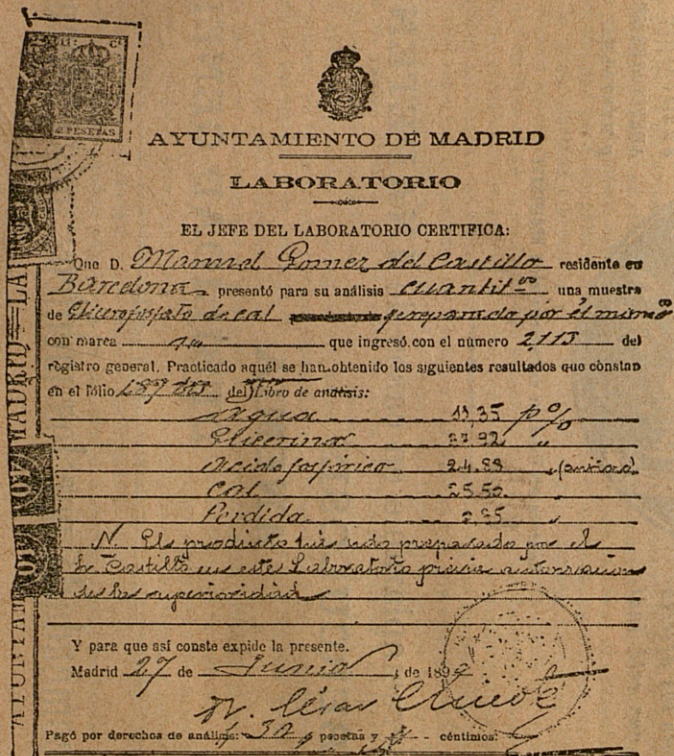 PESETAS
AYUNTAMIENTO DE MADRID
LABORATORIO
EL JEFE DEL LABORATORIO CERTIFICA:
Que D. Manuel Gomez del Castillo residente en
Barcelona presentó para su análisis cuantit.vo una muestra
de Glicerofosfato de cal preparado por él mismo
con marca que ingresó con el número 2,115 del
registro general. Practicado aquél se han obtenido los siguientes resultados que constan
en el fólio 187 del Libro de análisis:
agua 11,35 p%
Glicerina "
Acido fosfórico "
Cal 25,50. "
Perdida "
N. El producto ha sido preparado por el
Sr. Castillo en este Laboratorio previa autorizacion
de la superioridad
Y para que así conste expide la presente.
Madrid 27 de Junio de 189
César Chicote
Pagó por derechos de análisis: 30 pesetas y céntimos.
MADRID